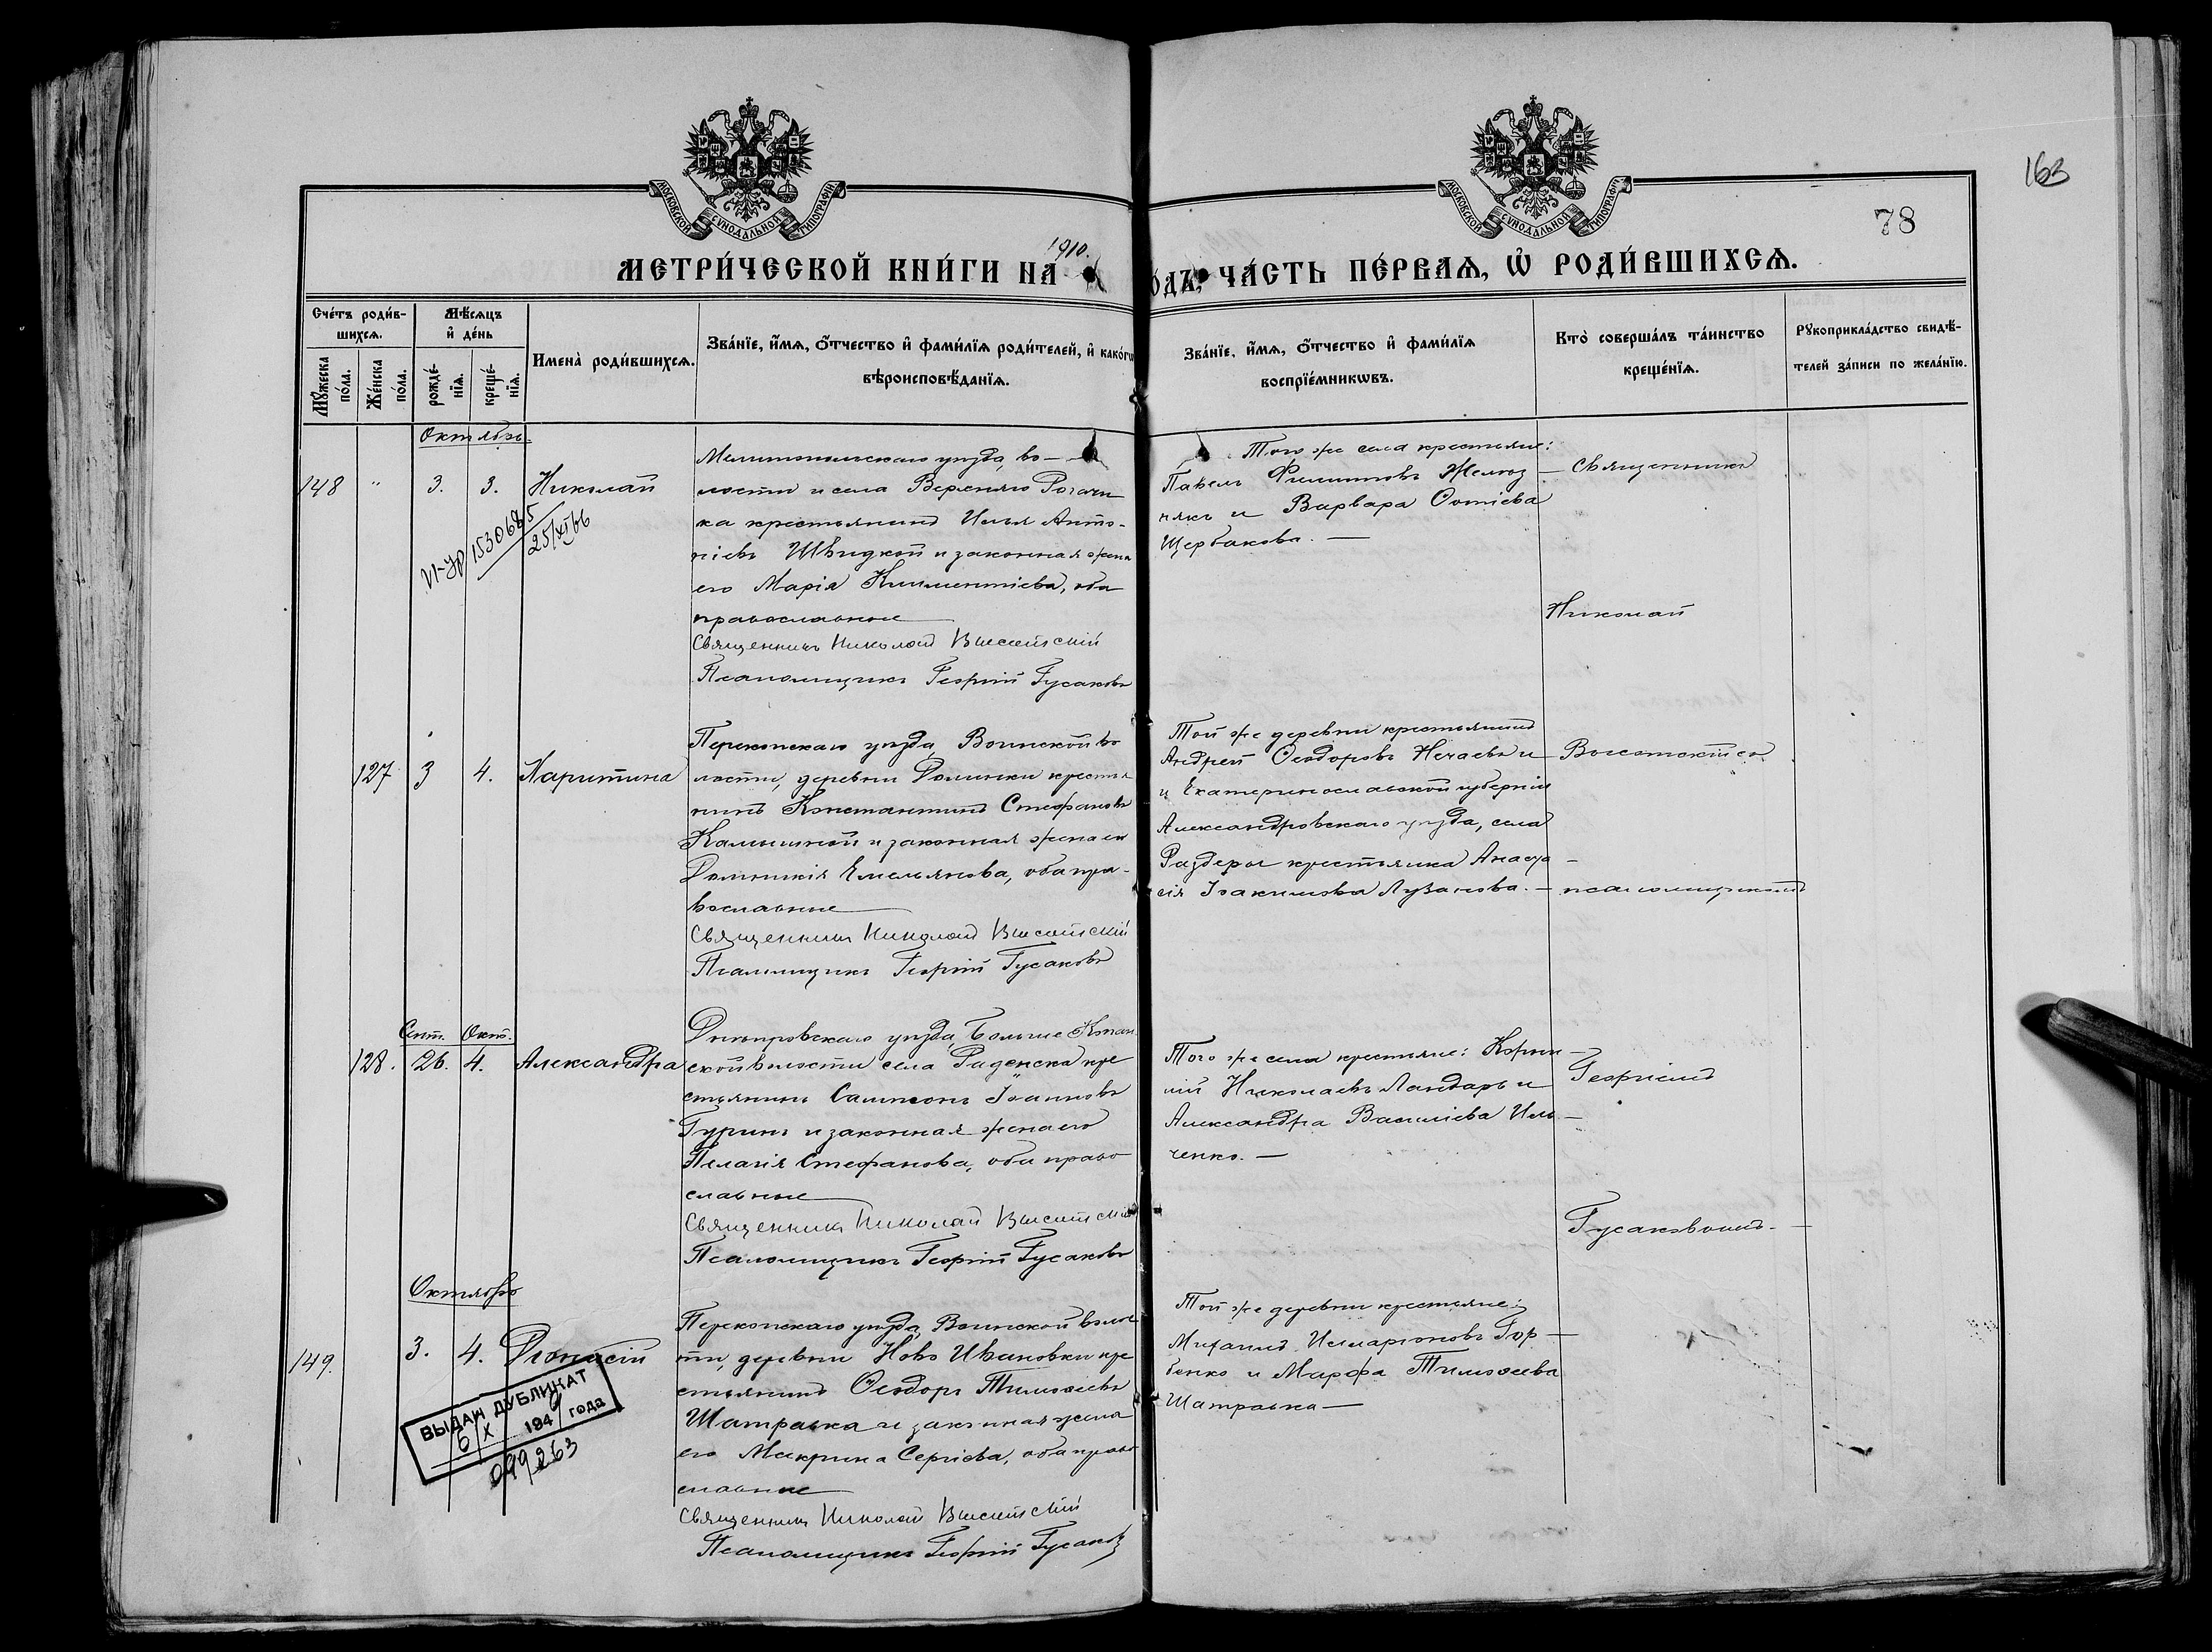 163
78
МОСКОВСКОЙ СУНОДАЛЬНОЙ ТИПОГРАФІИ
МОСКОВСКОЙ СУНОДАЛЬНОЙ ТИПОГРАФІИ
1910.
МЕТРИ́ЧЕСКОЙ КНИ́ГИ НА
О́ДЪ, ЧА́СТЬ ПЕ́РВАѦ, Ѡ҆ РОДИ́ВШИХСѦ.
Сче́тъ роди́в-
шихсѧ.
Мꙋ́жеска
по́ла.
Же́нска
по́ла.
Мѣ́сѧцъ
и҆ де́нь
рожде́-
нїѧ.
креще́-
нїѧ.
Имена̀ роди́вшихсѧ.
Зва́нїе, и҆́мѧ, ѻ҆́тчество и҆ фами́лїѧ роди́телей, и҆ како́гѡ
вѣроисповѣ́данїѧ.
Зва́нїе, и҆́мѧ, ѻ҆́тчество и҆ фами́лїѧ
воспрїе́мникѡвъ.
Кто̀ соверша́лъ та́инство
креще́нїѧ.
Рꙋкоприкла́дство свидѣ́-
телей за́писи по жела́нїю.
Октябрь
148 " 3. 3. Николай
Мелитопольскаго уѣзда, во-
лости и села Верхняго Рогачи
ка крестьянинъ Илья Анто-
ніевъ Швидкой и законная жена
его Марія Климентіева, оба
православные
Священникъ Николай Высотскій
Псаломщикъ Георгій Гусаковъ
Того же села крестьяне:
Павелъ Филипповъ Желѣз-
някъ и Варвара Фотіева
Щербакова. —
Священникъ
Николай
И-УР 1530685
25/XI 66
127 3 4. Харитина
Перекопскаго уѣзда, Воинской во
лости, деревни Долинки крестья
нинъ Константинъ Стефановъ
Калининой и законная жена его
Домникія Емельянова, оба пра-
вославные
Священникъ Николай Высотскій
Псаломщикъ Георгій Гусаковъ
Той же деревни крестьянинъ
Андрей Ѳеодоровъ Нечаевъ и
и Екатеринославской губерніи
Александровскаго уѣзда, села
Раздоръ крестьянка Анаста-
сія Іоакимова Лузанова. —
Высотскій съ
псаломщикомъ
Сент. Окт.
128. 26. 4. Александра
Днѣпровскаго уѣзда, Больше Копан
ской волости села Раденска кре
стьянинъ Сампсонъ Іоанновъ
Гуринъ и законная жена его
Пелагія Стефанова, оба право
славные
Священникъ Николай Высотскій
Псаломщикъ Георгій Гусаковъ
Того же села крестьяне: Корни-
лій Николаевъ Ландарь и
Александра Василіева Иль-
ченко. —
Георгіемъ
Гусаковымъ. —
Октябрь
149. 3. 4. Діонисій
Перекопскаго уѣзда, Воинской волос
ти, деревни Ново Ивановки кре
стьянинъ Ѳеодоръ Тимоѳеевъ
Шатравка и законная жена
его Макрина Сергіева, оба право
славные
Священникъ Николай Высотскій
Псаломщикъ Георгій Гусаковъ
Той же деревни крестьяне:
Михаилъ Илларіоновъ Гор-
бенко и Марфа Тимоѳеева
Шатравка —
ВЫДАН ДУБЛИКАТ
6/X 194 года
099263